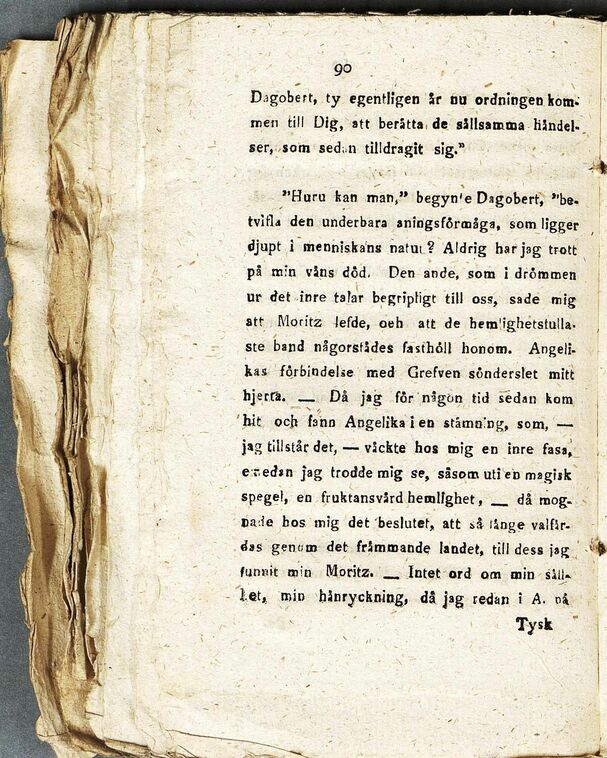 90
Dagobert, ty egentligen är nu ordningen kom-
men till Dig, att berätta de sällsamma händel-
ser, som sedan tilldragit sig."
"Huru kan man," begynte Dagobert, "be-
tvifla den underbara aningsförmåga, som ligger
djupt i menniskans natur? Aldrig har jag trott
på min väns död. Den ande, som i drömmen
ur det inre talar begripligt till oss, sade mig
att Moritz lefde, och att de hemlighetsfulla-
ste band någorstädes fasthöll honom. Angeli-
kas förbindelse med Grefven sönderslet mitt
hjerta. — Då jag för någon tid sedan kom
hit och fann Angelika i en stämning, som, —
jag tillstår det, — väckte hos mig en inre fasa,
emedan jag trodde mig se, såsom uti en magisk
spegel, en fruktansvärd hemlighet, — då mog-
nade hos mig det beslutet, att så länge vallfär-
das genom det främmande landet, till dess jag
funnit min Moritz. — Intet ord om min säll-
het, min hänryckning, då jag redan i A. på
Tysk